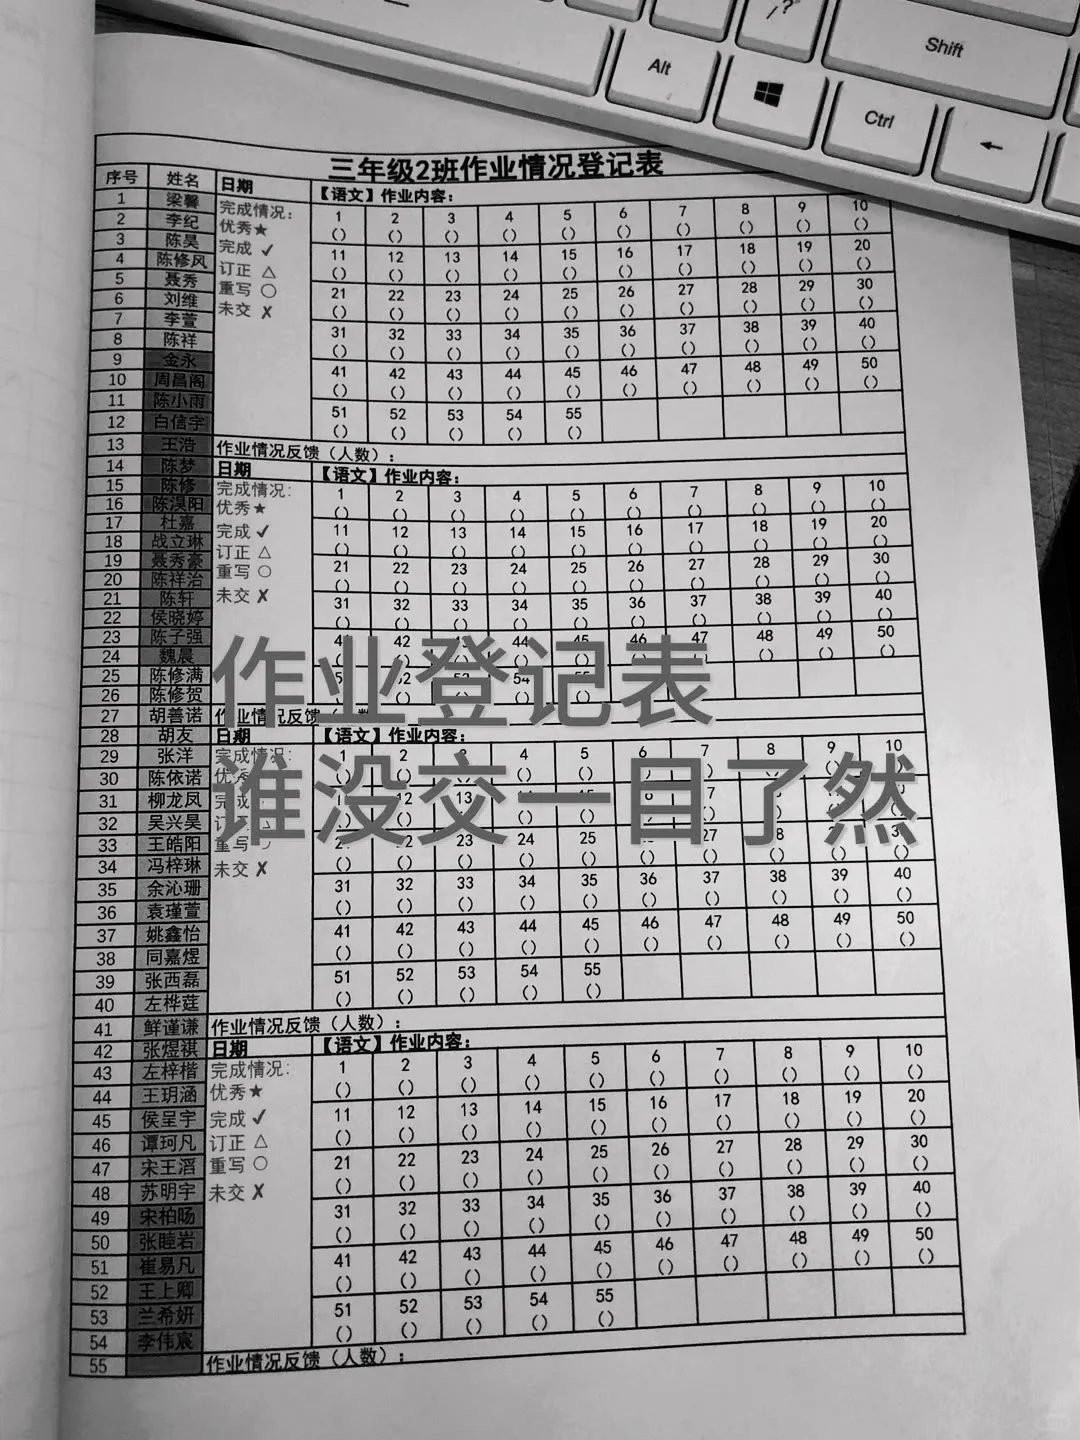 Alt
Shift
Ctrl
三年级2班作业情况登记表
序号 姓名 日期 【语文】作业内容:
1 梁馨
2 李纪
3 陈昊
4 陈修风
5 聂秀
6 刘维
7 李萱
8 陈祥
9 金永
10 周昌阁
11 陈小雨
12 白信宇
13 王浩
14 陈梦
15 陈修
16 陈淏阳
17 杜嘉
18 战立琳
19 聂秀豪
20 陈祥治
21 陈轩
22 侯晓婷
23 陈子强
24 魏晨
25 陈修满
26 陈修贺
27 胡善诺
28 胡友
29 张洋
30 陈依诺
31 柳龙凤
32 吴兴昊
33 王皓阳
34 冯梓琳
35 余沁珊
36 袁瑾萱
37 姚鑫怡
38 同嘉煜
39 张西磊
40 左桦莛
41 鲜谨谦
42 张煜祺
43 左梓楷
44 王玥涵
45 侯呈宇
46 谭珂凡
47 宋王滔
48 苏明宇
49 宋柏旸
50 张睦岩
51 崔易凡
52 王上卿
53 兰希妍
54 李伟宸
55
完成情况:
优秀★
完成 ✓
订正 △
重写 ○
未交 ✗
1 2 3 4 5 6 7 8 9 10
() () () () () () () () () ()
11 12 13 14 15 16 17 18 19 20
() () () () () () () () () ()
21 22 23 24 25 26 27 28 29 30
() () () () () () () () () ()
31 32 33 34 35 36 37 38 39 40
() () () () () () () () () ()
41 42 43 44 45 46 47 48 49 50
() () () () () () () () () ()
51 52 53 54 55
() () () () ()
作业情况反馈（人数）:
日期 【语文】作业内容:
完成情况:
优秀★
完成 ✓
订正 △
重写 ○
未交 ✗
1 2 3 4 5 6 7 8 9 10
() () () () () () () () () ()
11 12 13 14 15 16 17 18 19 20
() () () () () () () () () ()
21 22 23 24 25 26 27 28 29 30
() () () () () () () () () ()
31 32 33 34 35 36 37 38 39 40
() () () () () () () () () ()
42 44 45 46 47 48 49 50
作业登记表
作业情况反馈
日期 【语文】作业内容:
完成情况:
1 2 4 5 7 8 9 10
谁没交一目了然
重写
未交 ✗
23 24 25 27
() () () () () () () () () ()
31 32 33 34 35 36 37 38 39 40
() () () () () () () () () ()
41 42 43 44 45 46 47 48 49 50
() () () () () () () () () ()
51 52 53 54 55
() () () () ()
作业情况反馈（人数）:
日期 【语文】作业内容:
完成情况:
优秀★
完成 ✓
订正 △
重写 ○
未交 ✗
1 2 3 4 5 6 7 8 9 10
() () () () () () () () () ()
11 12 13 14 15 16 17 18 19 20
() () () () () () () () () ()
21 22 23 24 25 26 27 28 29 30
() () () () () () () () () ()
31 32 33 34 35 36 37 38 39 40
() () () () () () () () () ()
41 42 43 44 45 46 47 48 49 50
() () () () () () () () () ()
51 52 53 54 55
() () () () ()
作业情况反馈（人数）: